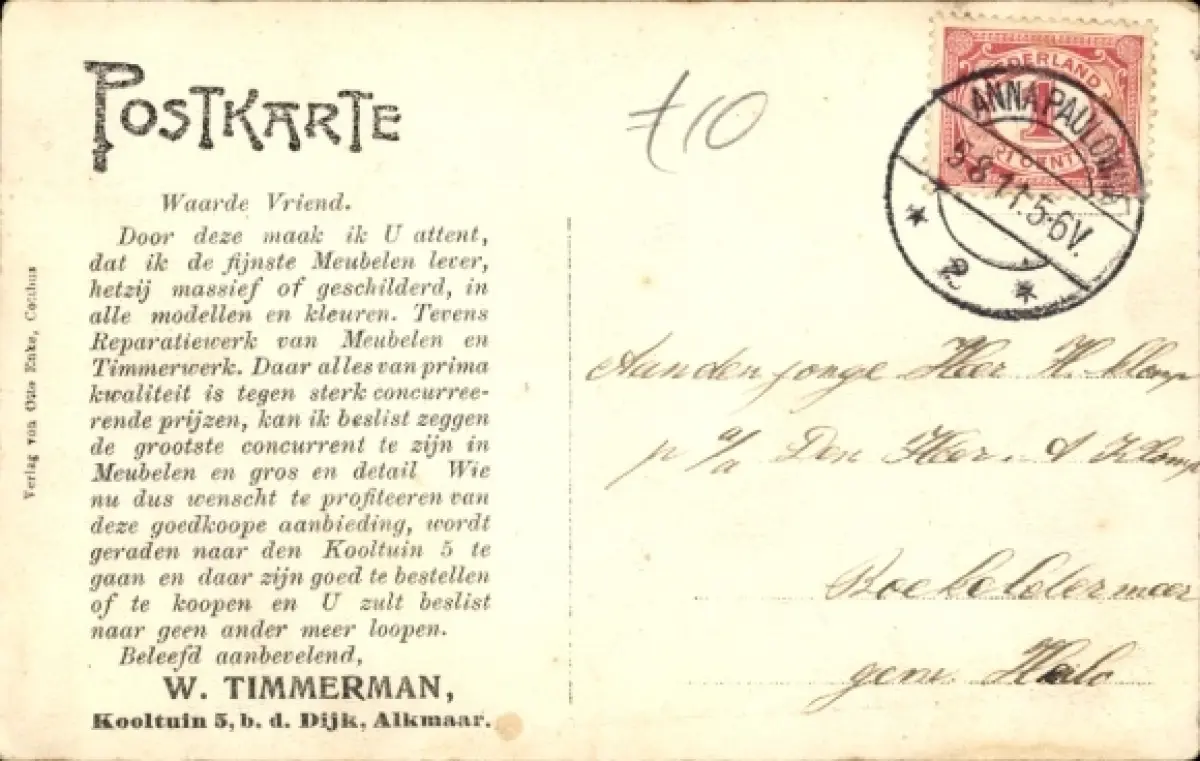 POSTKARTE
Waarde Vriend.
Door deze maak ik U attent,
dat ik de fijnste Meubelen lever,
hetzij massief of geschilderd, in
alle modellen en kleuren. Tevens
Reparatiewerk van Meubelen en
Timmerwerk. Daar alles van prima
kwaliteit is tegen sterk concurree-
rende prijzen, kan ik beslist zeggen
de grootste concurrent te zijn in
Meubelen en gros en detail Wie
nu dus wenscht te profiteeren van
deze goedkoope aanbieding, wordt
geraden naar den Kooltuin 5 te
gaan en daar zijn goed te bestellen
of te koopen en U zult beslist
naar geen ander meer loopen.
Beleefd aanbevelend,
W. TIMMERMAN,
Kooltuin 5, b. d. Dijk, Alkmaar.
Verlag von Otto Enke, Cottbus
10
NEDERLAND
1
CENT
ANNA PAULOWNA
5.8.11.5-6V.
2
Aan den jonge Heer H. Klomp
p a/a Den Heer. A Klomp
Boekeldermeer
gem. Heilo